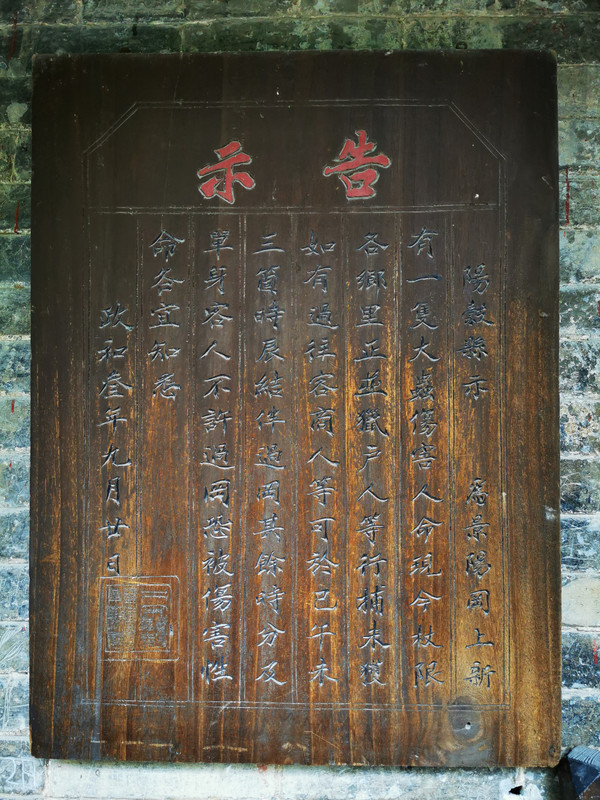 告示
陽穀縣示 為景陽岡上新
有一隻大蟲傷害人命現今杖限
各鄉里正並獵戶人等行捕未獲
如有過往客商人等可於巳午未
三箇時辰結伴過岡其餘時分及
單身客人不許過岡恐被傷害性
命各宜知悉
政和叁年九月廿日